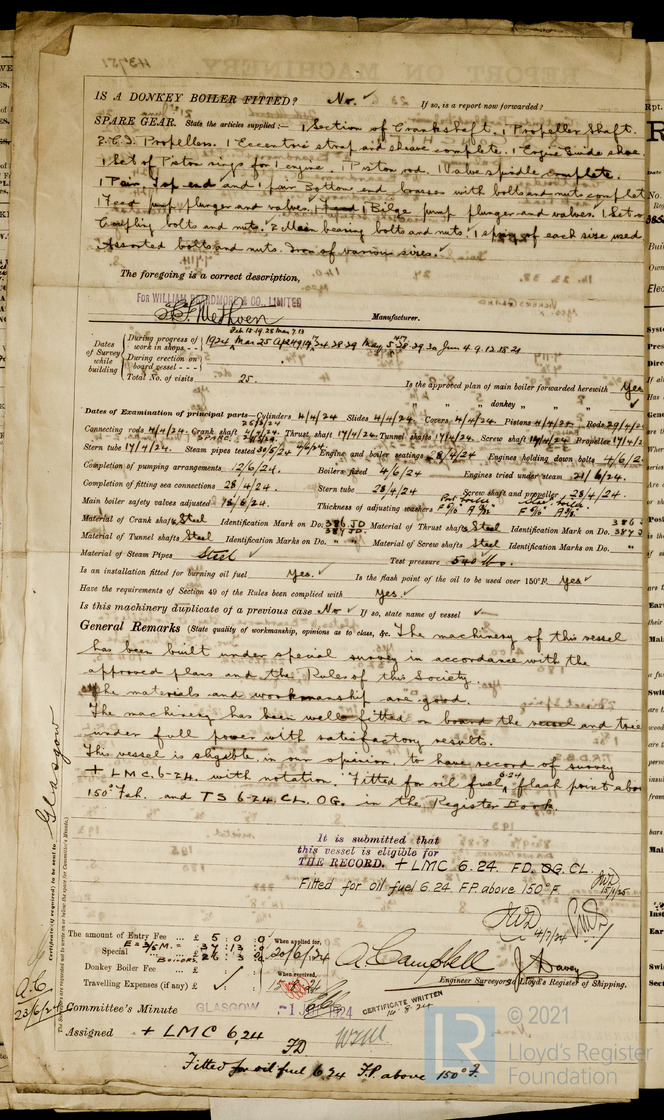 IS A DONKEY BOILER FITTED? No. ✓ If so, is a report now forwarded?
SPARE GEAR. State the articles supplied:— 1 Section of Crankshaft. 1 Propeller Shaft.
2 C.I. Propellers. 1 Eccentric strap and sheave complete. 1 Engine Guide shoe.
1 Set of Piston rings for 1 engine. 1 Piston rod. 1 Valve spindle complete.
1 Pair Top end and 1 pair Bottom end brasses with bolts and nuts complet
1 Feed pump plunger and valves. 1 Bilge pump plunger and valves. 1 Set
Coupling bolts and nuts. 2 Main bearing bolts and nuts. 1 spring of each size used
Assorted bolts and nuts. Iron of various sizes.
The foregoing is a correct description,
FOR WILLIAM BEARDMORE & CO., LIMITED
Methven Manufacturer.
Dates of Survey while building
During progress of work in shops - -
1924 Mar 25
29 30 Jun 4 9 12 18 21
During erection on board vessel - - -
Total No. of visits 25.
Is the approved plan of main boiler forwarded herewith Yes
" " " donkey " " " ✓
Dates of Examination of principal parts—Cylinders 4/4/24 Slides 4/4/24. Covers 4/4/24. Pistons 4/4/24. Rods
Connecting rods 4/4/24. Crank shaft Thrust shaft 17/4/24. Tunnel shafts 17/4/24. Screw shaft Propeller
Stern tube 17/4/24. Steam pipes tested Engine and boiler seatings 28/4/24 Engines holding down bolts 4/6/2
Completion of pumping arrangements 12/6/24. Boilers fixed 4/6/24 Engines tried under steam 21/6/24.
Completion of fitting sea connections 28/4/24. Stern tube 28/4/24 Screw shaft and propeller 28/4/24.
Main boiler safety valves adjusted Thickness of adjusting washers
Material of Crank shaft Steel Identification Mark on Do. Material of Thrust shaft Steel Identification Mark on Do.
Material of Tunnel shafts Steel Identification Marks on Do. " " Material of Screw shafts Steel Identification Marks on Do. "
Material of Steam Pipes Steel ✓ Test pressure 540 lbs.
Is an installation fitted for burning oil fuel Yes. ✓ Is the flash point of the oil to be used over 150°F. Yes ✓
Have the requirements of Section 49 of the Rules been complied with Yes. ✓
Is this machinery duplicate of a previous case No ✓ If so, state name of vessel ✓
General Remarks (State quality of workmanship, opinions as to class, &c. The machinery of this vessel
has been built under special survey in accordance with the
approved plans and the Rules of this Society.
The materials and workmanship are good.
The machinery has been well fitted on board the vessel and trie
under full power with satisfactory results.
This vessel is eligible in our opinion to have record of survey
+ LMC. 6-24. with notation. "Fitted for oil fuel 6-24 flash point abo
150° Fah. and TS 6-24. CL. OG. in the Register Book.
It is submitted that
this vessel is eligible for
THE RECORD. + LMC 6.24. FD. OG. CL.
Fitted for oil fuel 6.24 F.P. above 150°F.
4/7/24
Glasgow
Certificate (if required) to be sent to
The amount of Entry Fee ... £ 5 : 0 : 0 When applied for,
Special £ 37 : 13 : 9 20/6/24
Donkey Boiler Fee ... £ : : When received,
Travelling Expenses (if any) £ ✓
A. Campbell J. Davey
Engineer Surveyors to Lloyd's Register of Shipping.
A.C.
23/6/24
Committee's Minute GLASGOW -1 JUL 1924
CERTIFICATE WRITTEN
14.8.24
Assigned + LMC 6,24
FD
Fitted for oil fuel 6.24 F.P. above 150°F.
© 2021
LR
Lloyd's Register
Foundation